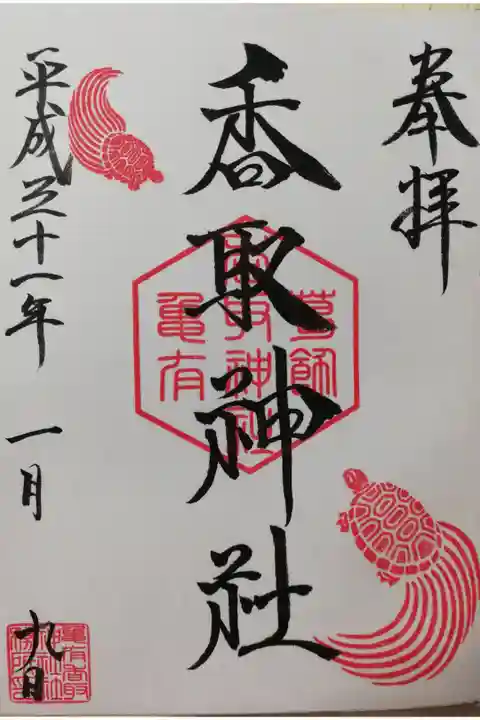 奉拝
葛飾
香取神社
亀有
香取神社
平成三十一年 一月 九日